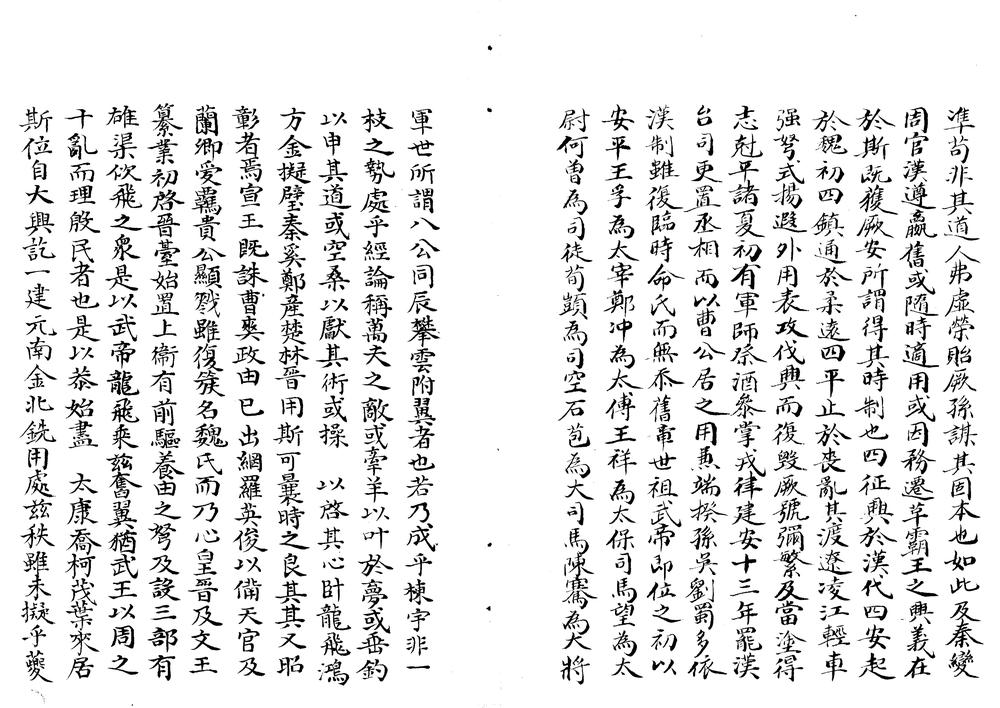 準苟非其道人弗虛榮貽厥孫謀其固本也如此及秦變
周官漢遵嬴舊或隨時適用或因務遷革霸王之興義在
於斯既獲厥安所謂得其時制也四征興於漢代四安起
於魏初四鎮通於柔遠四平止於喪亂其渡遼凌江輕車
强弩式揚遐外用表攻伐興而復毀厥號彌繁及當塗得
志尅平諸夏初有軍師祭酒叅掌戎律建安十三年罷漢
台司更置丞相而以曹公居之用兼端揆孫吳劉蜀多依
漢制雖復臨時命氏而無忝舊章世祖武帝即位之初以
安平王孚為太宰鄭冲為太傅王祥為太保司馬望為太
尉何曾為司徒荀顗為司空石苞為大司馬陳騫為大將
軍世所謂八公同辰攀雲附翼者也若乃成乎棟宇非一
枝之勢處乎經論稱萬夫之敵或牽羊以叶於夢或垂釣
以申其道或空桑以獻其術或操 以啓其心卧龍飛鴻
方金擬璧秦奚鄭產楚林晉用斯可曩時之良其其又昭
彰者焉宣王既誅曹爽政由已出網羅英俊以備天官及
蘭卿受羈貴公顯戮雖復策名魏氏而乃心皇晉及文王
纂業初啓晉臺始置上衛有前驅養由之弩及設三部有
雄渠佽飛之衆是以武帝龍飛乘茲奮翼猶武王以周之
十亂而理殷民者也是以泰始盡 太康喬柯茂葉來居
斯位自大興訖一建元南金北銑用處茲秩雖未擬乎夔